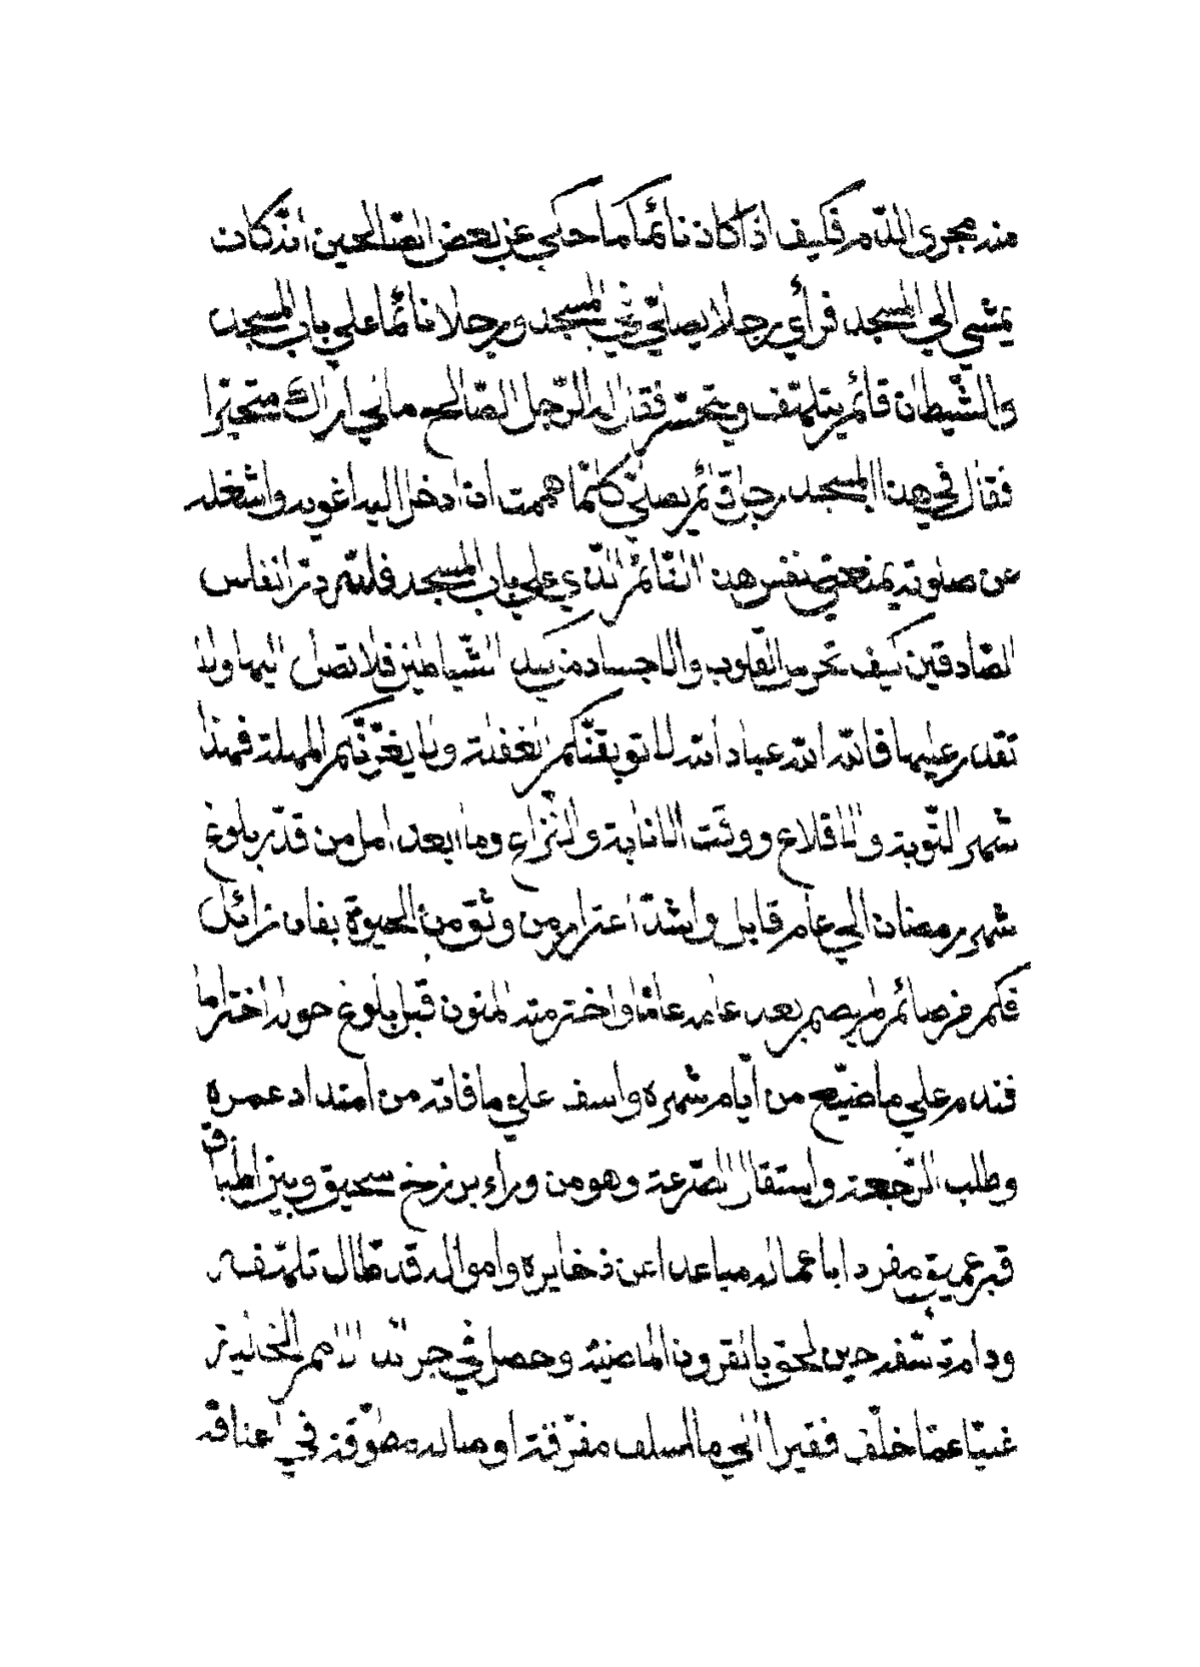 منه مجرى الدّم فكيف اذا كان نائما كما حكي عن بعض الصّالحين انّه كان
يمشي الي المسجد فرأي رجلا يصلّي في المسجد ورجلا نائما علي باب المسجد
والشّيطان قائم يتلهّف ويتحسّر فقال له الرّجل الصّالح ما لي اراك متحيّرا
فقال في هذا المسجد رجل قائم يصلّي كلّما هممت ان ادخل اليه اغويه واشغله
عن صلوته يمنعني نفس هذا النّائم الّذي علي باب المسجد فللّه درّ انفاس
الصّادقين كيف تحرس القلوب والاجساد من كيد الشّياطين فلا تصل اليها ولا
تقدر عليها فاللّه اللّه عباد اللّه لا توبقنّكم الغفلة ولا يغرّنّكم المهلة فهذا
شهر التّوبة والاقلاع ووقت الانابة والنّزاع وما ابعد امل من قدّر بلوغ
شهر رمضان الي عام قابل واشدّ اغترار من وثق من الحيوة بفان زائل
فكم من صائم لم يصم بعد عامه عاما واخترمته المنون قبل بلوغ حوله اختراما
فندم علي ما ضيّع من ايّام شهره واسف علي ما فاته من امتداد عمره
وطلب الرّجعة واستقال الصّرعة وهو من وراء برزخ سحيق وبين اطباق
قبر عميق مفردا باعماله مباعدا عن ذخايره وامواله قد طال تلهّفه
ودامت حين لحق بالقرون الماضية وحصل في الامم الخالية
غنيّا عمّا خلّف فقيرا الي ما اسلف مفرّقة اوصاله مطوّقة في اعناقه